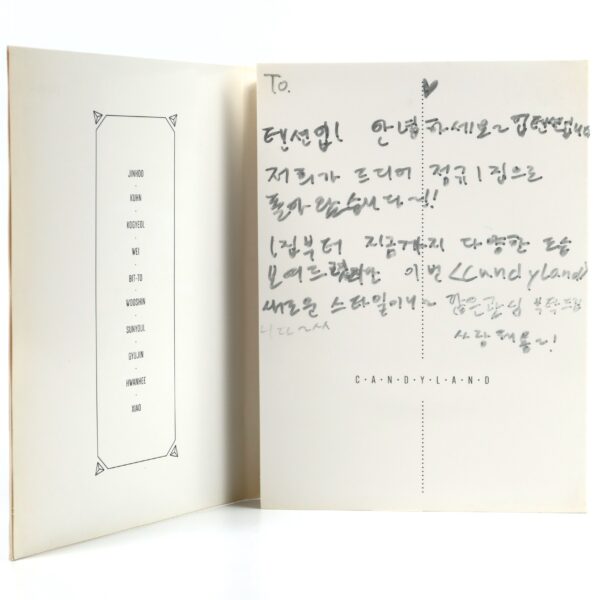 JINHOO
KUHN
KOGYEOL
WEI
BIT-TO
WOOSHIN
SUNYOUL
GYUJIN
HWANHEE
XIAO
To.
텐션업! 안녕하세요~ 업텐션입니다
저희가 드디어 정규 1집으로
돌아왔습니다~!!
1집부터 지금까지 다양한 모습
보여드렸지만 이번 <Candyland>
새로운 스타일이니~ 많은 관심 부탁드립
니다~^^
사랑해용~!
CANDYLAND